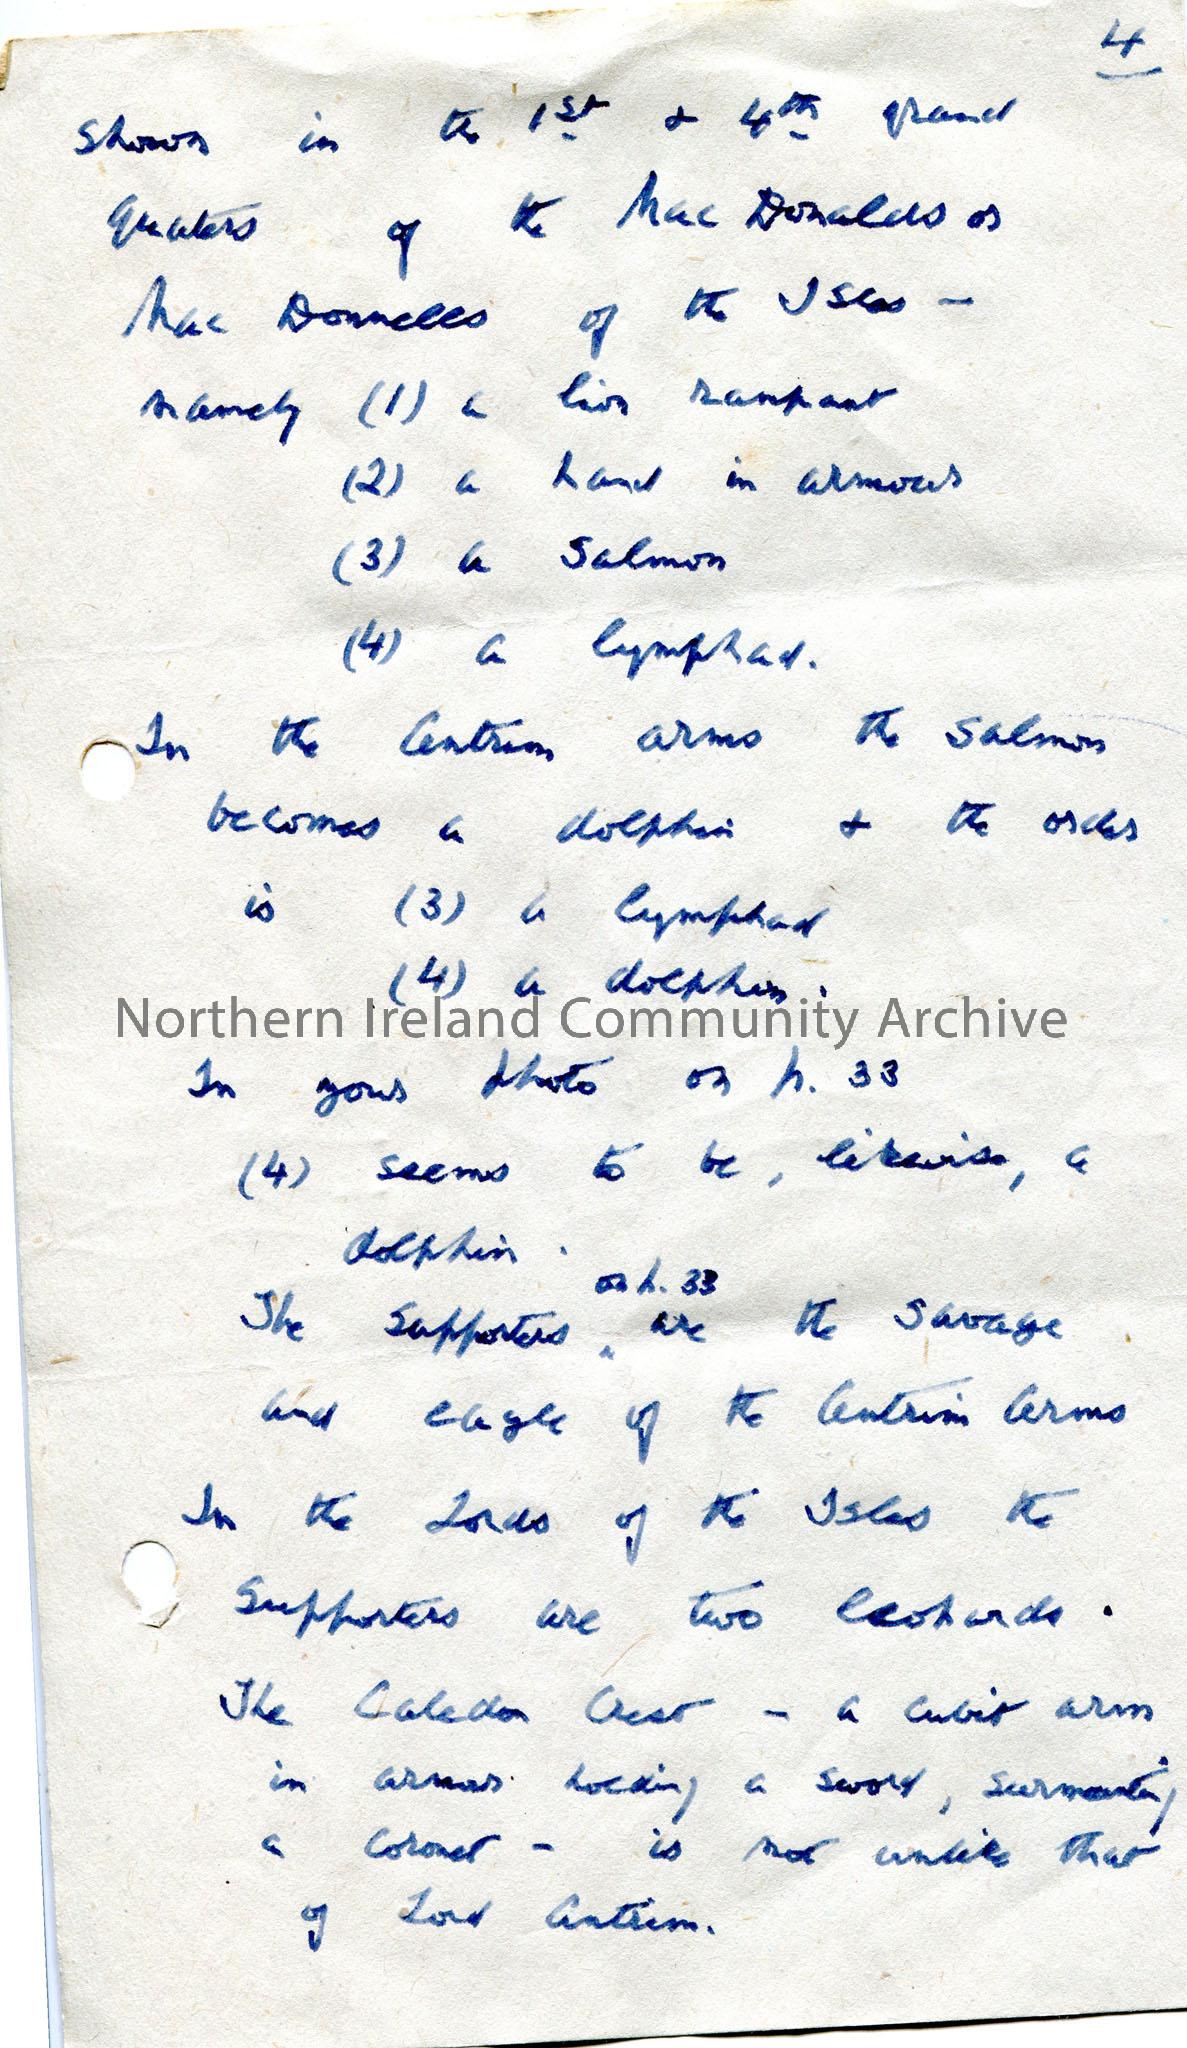 4
Shown in the 1st & 4th grand
quaters of the MacDonalds or
MacDonnells of the Isles -
namely (1) a lion rampant
(2) a hand in armour
(3) a Salmon
(4) a lymphad.
In the Antrim arms the Salmon
becomes a dolphin & the order
is (3) a lymphad
(4) a dolphin.
Northern Ireland Community Archive
In your photo on p. 33
(4) seems to be, likewise, a
dolphin.
on p. 33
The Supporters ^ are the Savage
and eagle of the Antrim Arms
In the Lords of the Isles the
Supporters are two leopards.
The Caledon Crest - a cubit arm
in armour holding a sword, surmounting
a coronet - is not unlike that
of Lord Antrim.